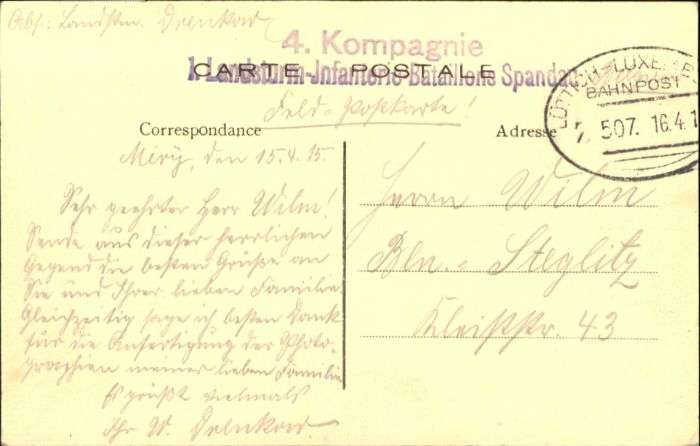 Abs: Landstm. Drenkow
4. Kompagnie
CARTE POSTALE
1. Landsturm-Infanterie-Bataillons Spandau
LÜTTICH-LUXEMB
BAHNPOST
507. 16.4.1
Feld-Postkarte!
Correspondance
Adresse
Méry, den 15.4.15.
Sehr geehrter Herr Wilm!
Sende aus dieser herrlichen
Gegend die besten Grüße an
Sie und Ihrer lieben Familie.
Gleichzeitig sage ich besten Dank
für die Anfertigung der Photo-
graphien meiner lieben Familie
Es grüßt vielmals
Ihr W. Drenkow
Herrn Wilm
Bln.- Steglitz
Kleiststr. 43